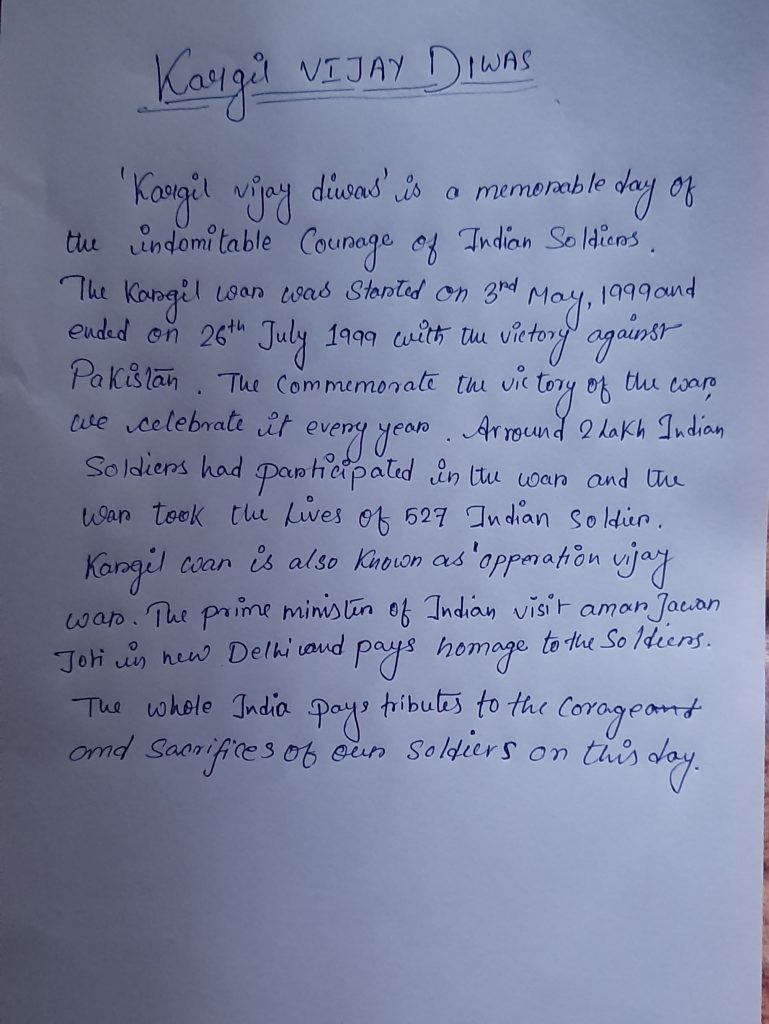 Kargil VIJAY DIWAS
'Kargil vijay diwas' is a memorable day of
the indomitable Courage of Indian Soldiers.
The Kargil war was Started on 3rd May, 1999 and
ended on 26th July 1999 with the victory against
Pakistan. The Commemorate the victory of the war,
we celebrate it every year. Arround 2 Lakh Indian
Soldiers had participated in the war and the
War took the Lives of 527 Indian Soldier.
Kargil war is also Known as 'opperation vijay
war. The prime minister of Indian visit aman Jawan
Joti in new Delhi and pays homage to the Soldiers.
The whole India pays tributes to the Corage and
and Sacrifices of our Soldiers on this day.